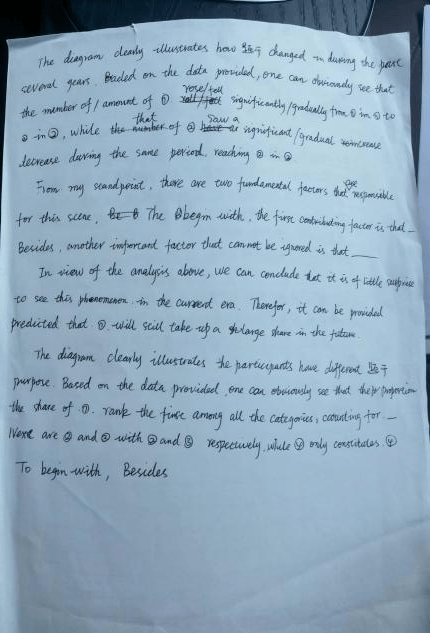 The diagram clearly illustrates how 图示 changed in during the past
several years. Based on the data provided, one can obviously see that
rose/fell
the number of / amount of ① significantly/gradually from ① in ① to
that saw a
② in ②, while the number of ② significant/gradual increase
decrease during the same period, reaching ② in ②
are
From my standpoint, there are two fundamental factors that responsible
for this scene, The begin with, the first contributing factor is that _
Besides, another important factor that cannot be ignored is that ___
In view of the analysis above, we can conclude that it is of little surprise
to see this phenomenon in the current era. Therefor, it can be provided
predicted that ①. will still take up a large share in the future.
The diagram clearly illustrates the participants have different 图示
purpose. Based on the data provided, one can obviously see that the proportion
the share of ①. rank the first among all the categories, counting for _
Next are ② and ③ with ② and ③ respectively, while ④ only constitutes ④
To begin with, Besides